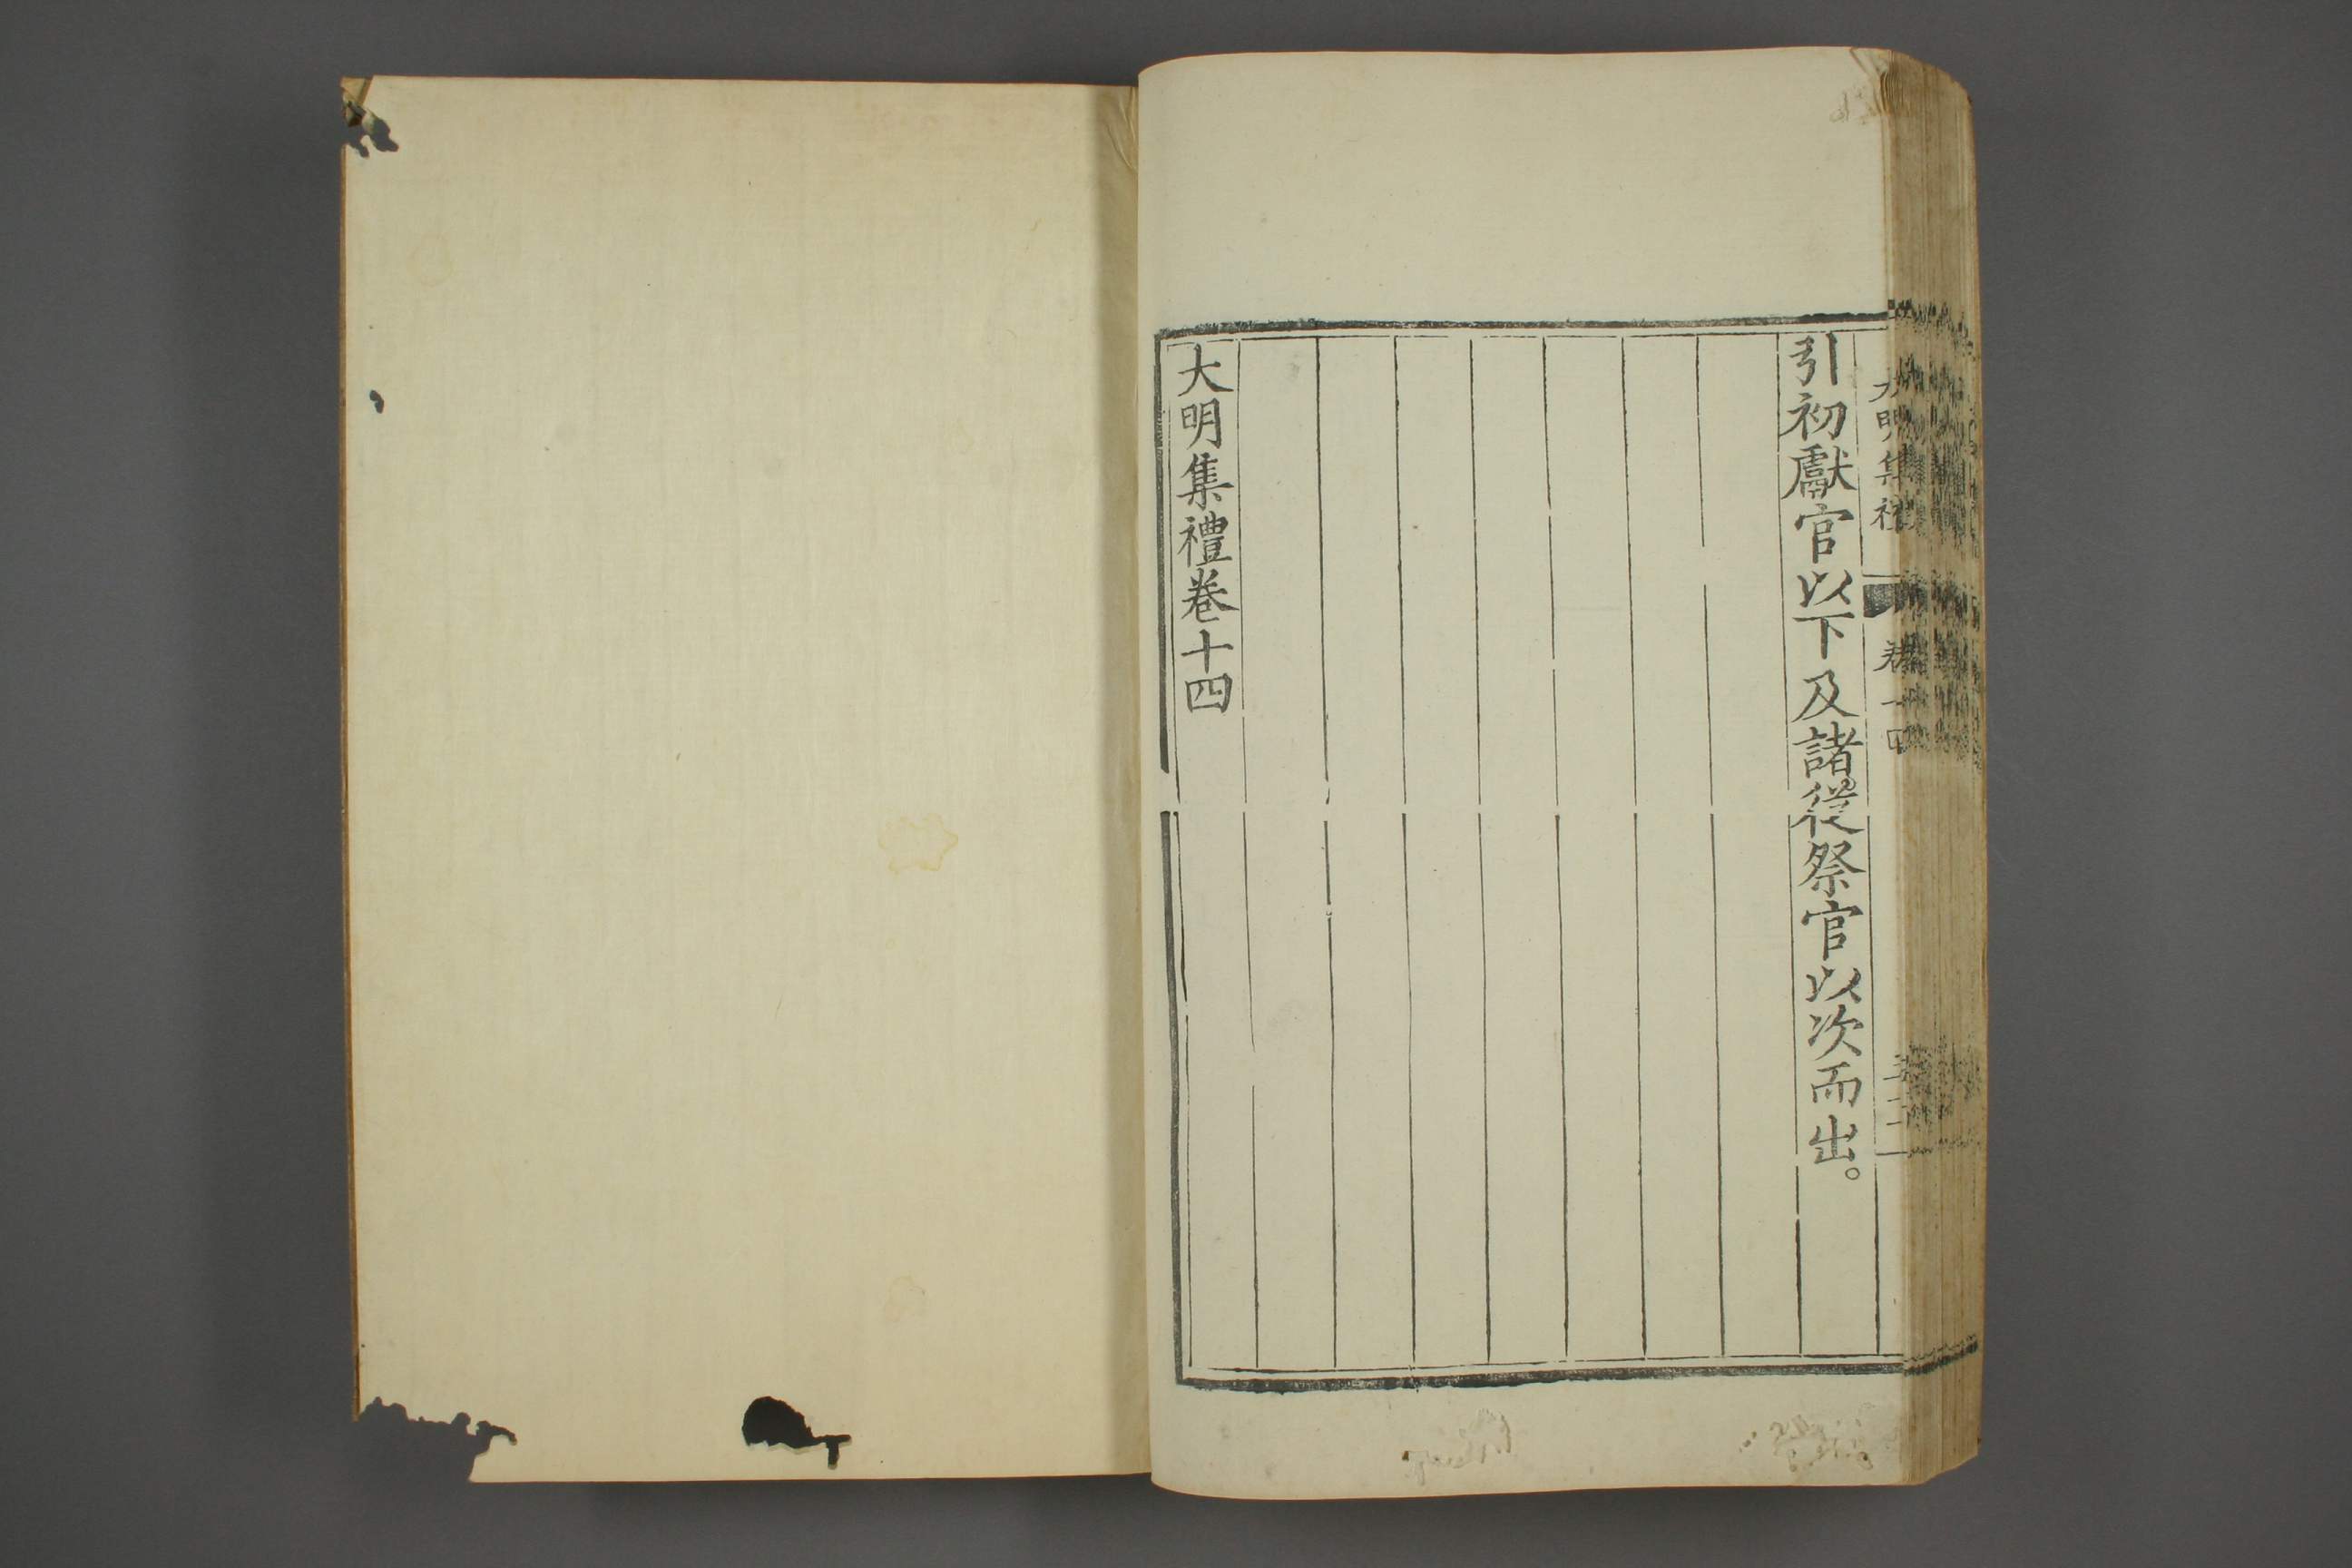 大明集禮 卷十四
引初獻官以下及諸從祭官以次而出。
大明集禮卷十四